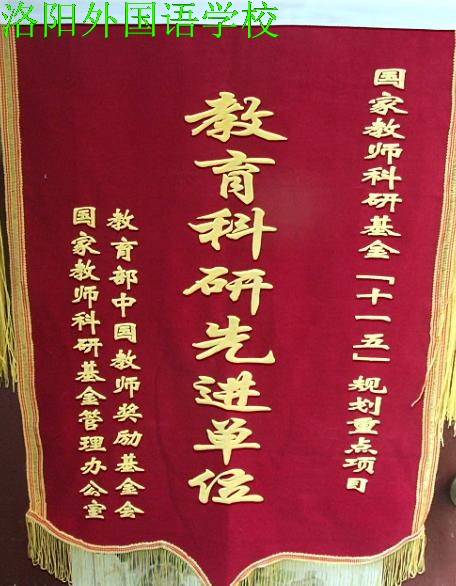 洛阳外国语学校
国家教师科研基金「十一五」规划重点项目
教育科研先进单位
教育部中国教师奖励基金会
国家教师科研基金管理办公室